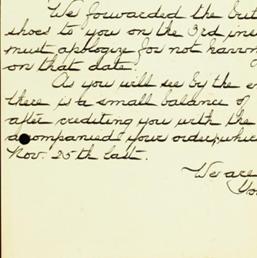 We forwarded the
shoes to you on the 3rd
must apologize for not
on that date.
As you will see by the
there is a small balance of
after crediting you with the
accompanied your order, which
Nov. 25th last.
We are